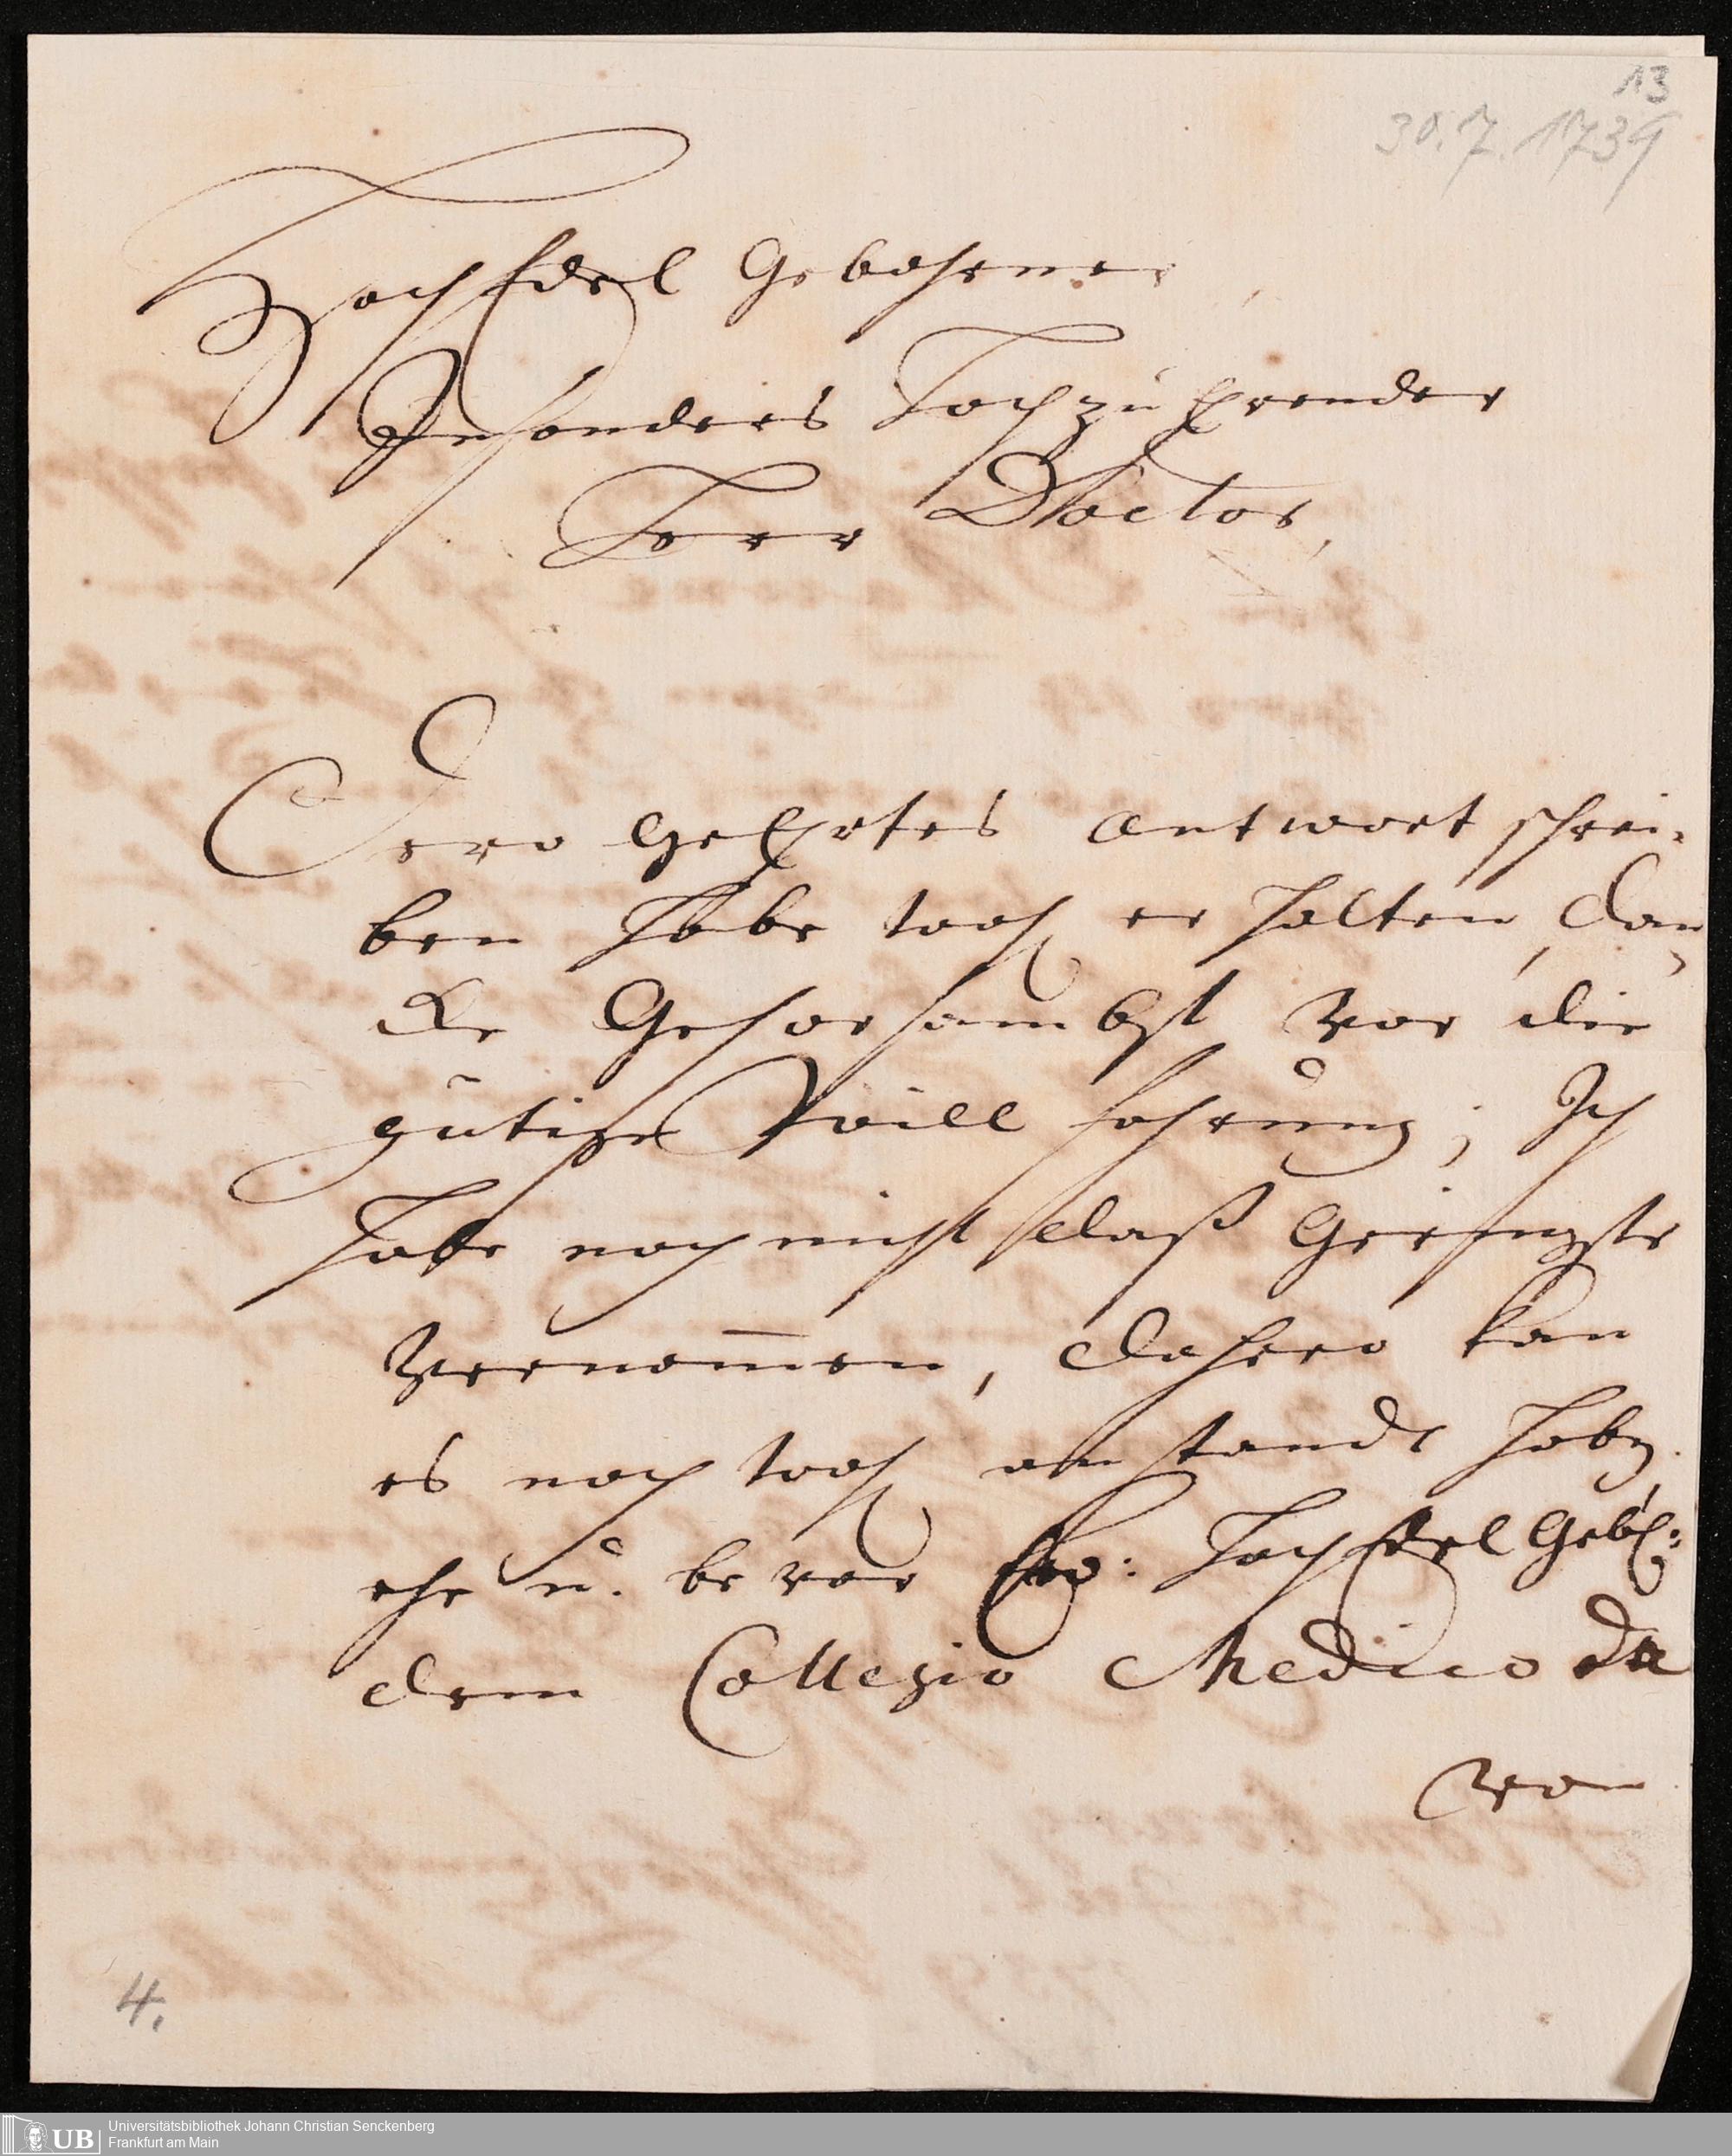 13
30.7.1739
HochEdel Gebohrner,
Insonders HochzuEhrender
Herr Doctor,
Dero geEhrtes Antwort schrei-
ben habe wohl erhalten, dan
cke Gehorsambst vor die
gütige Willfahrung; Ich
habe noch nicht daß Geringste
vernom̅en, dahero kan
es noch wohl anstandt haben
ehe u. bevor Ew: HochEdel Gebh:
dem Collegio Medico da
von
4.
UB
Universitätsbibliothek Johann Christian Senckenberg
Frankfurt am Main